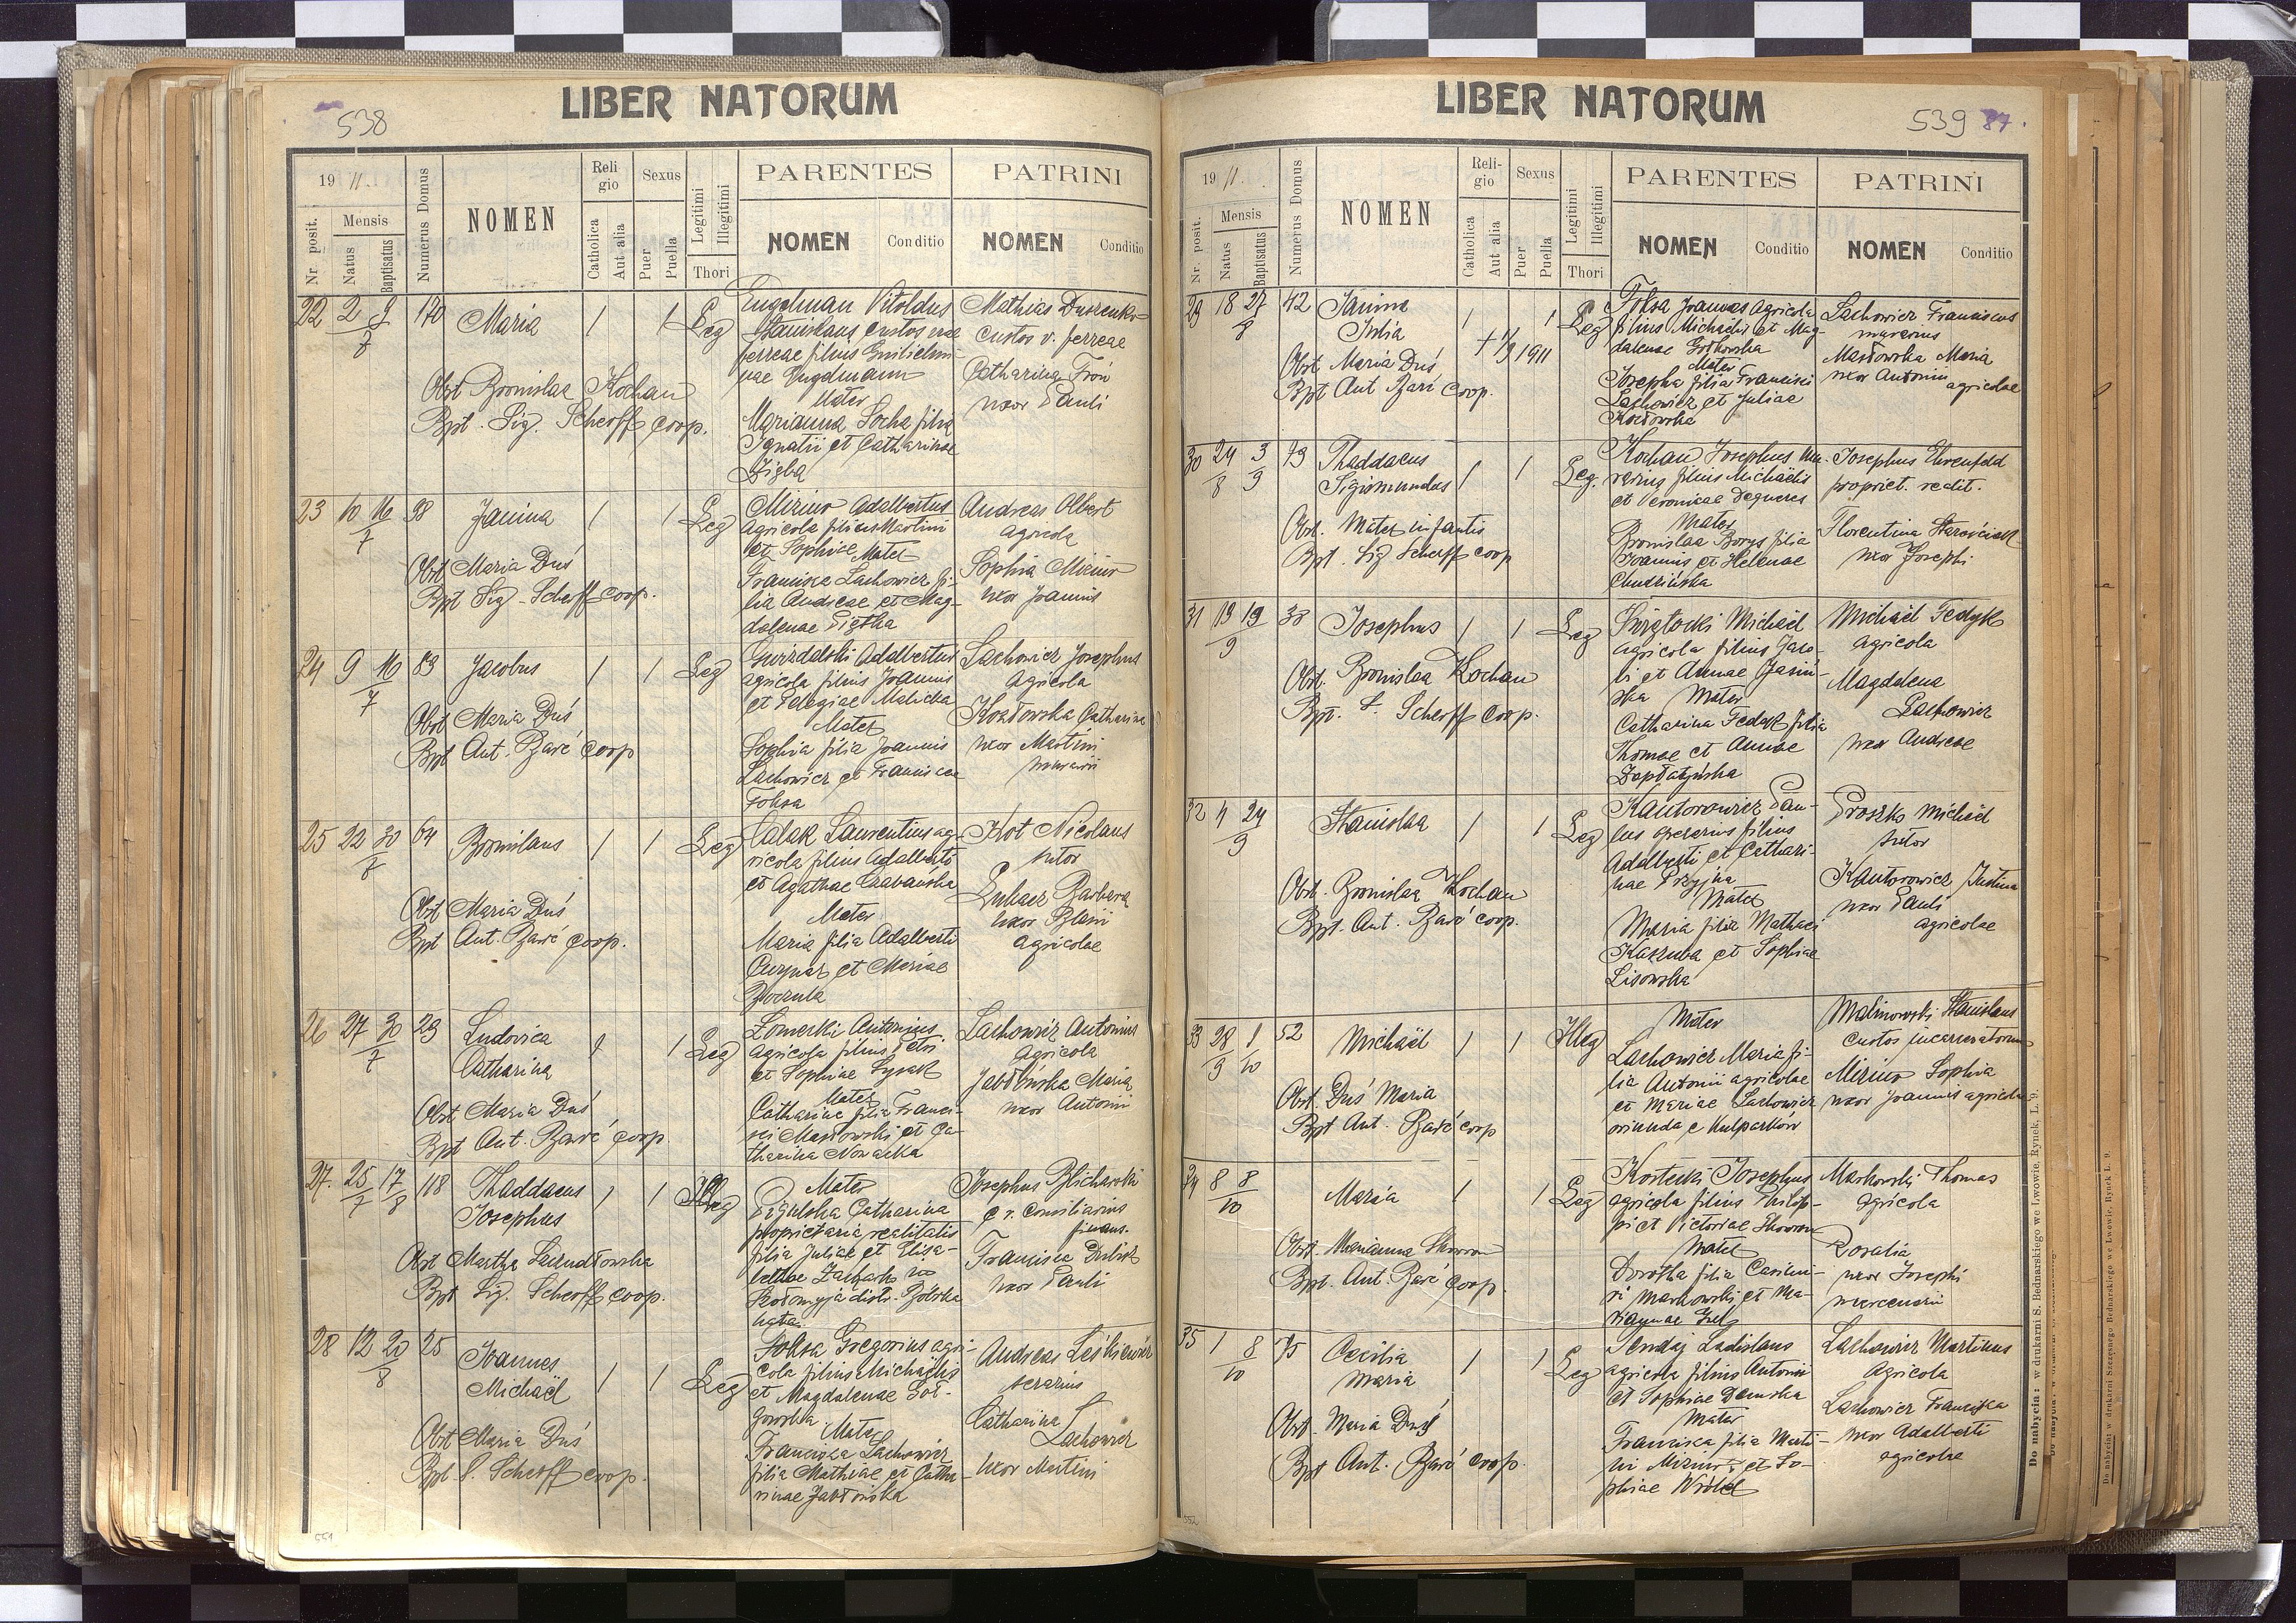 538
LIBER NATORUM
19 11.
Nr. posit.
Mensis
Natus
Baptisatus
Numerus Domus
NOMEN
Religio
Catholica
Aut alia
Sexus
Puer
Puella
Legitimi
Illegitimi
Thori
PARENTES
NOMEN Conditio
PATRINI
NOMEN Conditio
22 2 9/7 170 Maria 1 1 Leg
Obst Bronislaa Kochan
Bpt. Sig. Scherff coop.
Engelman Vitoldus
Stanislaus custos viae
ferreae filius Guilielmi-
nae Engelmann
Mater
Marianna Socha filia
Ignatii et Catharinae
Zięba
Mathias
custos v. ferreae
Catharina Troń
uxor Pauli
23 10 16/7 98 Janina 1 1 Leg
Obst Maria Duś
Bpt Sig. Scherff coop.
Miziur Adalbertus
agricola filius Martini
et Sophiae Mater
Francisca Lachowicz fi-
lia Andreae et Mag-
dalenae Piętka
Andreas Olbert
agricola
Sophia Miziur
uxor Joannis
24 9 16/7 83 Jacobus 1 1 Leg
Obst Maria Duś
Bpt Ant. Barć coop
Gwizdalski Adalbertus
agricola filius Joannis
et Pelagiae Malicka
Mater
Sophia filia Joannis
Lachowicz et Franciscae
Foksa
Lachowicz Josephus
agricola
Kozłowska Catharina
uxor Martini
murarii
25 22 30/7 64 Bronislaus 1 1 Leg
Obst Maria Duś
Bpt Ant. Barć coop.
Calak Laurentius ag-
ricola filius Adalberti
et Agathae
Mater
Maria filia Adalberti
et Mariae
Kot Nicolaus
sutor
Łukacz Barbara
uxor Blasii
agricolae
26 27 30/7 29 Ludovica 1 1 Leg
Catharina
Obst Maria Duś
Bpt Ant. Barć coop
Łomecki Antonius
agricola filius Petri
et Sophiae Łysak
Mater
Catharina filia Franci-
sci Masłowski et Ca-
tharina Nowacka
Lachowicz Antonius
agricola
Jabłońska Maria
uxor Antonii
27. 25/7 17/8 118 Thaddaeus 1 1 Illeg
Josephus
Obst Martha
Bpt Sig. Scherff coop.
Mater
Catharina
propietaria realitatis
filia Juliae et Elisa-
bethae
Kołomyja distr.
Josephus Blicharski
c. r. consiliarius
finans.
Francisca
uxor Pauli
28 12 20/8 25 Joannes 1 1 Leg
Michaël
Obst Maria Duś
Bpt S. Scherff coop.
Foksa Gregorius agri-
cola filius Michaëlis
et Magdalenae Goł-
kowska Mater
Francisca Lachowicz
filia Mathiae et Catha-
rinae Jabłońska
Andreas Leśkiewicz
serarius
Catharina
Lachowicz
uxor Martini
551
539 87.
LIBER NATORUM
19 11.
Nr. posit.
Mensis
Natus
Baptisatus
Numerus Domus
NOMEN
Religio
Catholica
Aut alia
Sexus
Puer
Puella
Legitimi
Illegitimi
Thori
PARENTES
NOMEN Conditio
PATRINI
NOMEN Conditio
29 18 27/8 42 Janina 1 1 Leg
Julia
Obst Maria Duś
Bpt Ant Barć coop.
Foksa Joannes agricola
filius Michaelis et Mag-
dalenae Gołkowska
Mater
Josepha filia Francisci
Lachowicz et Juliae
Kozłowska
Lachowicz Franciscus
murarius
Masłowska Maria
uxor Antonii
agricolae
30 24/8 3/9 79 Thaddaeus 1 1 Leg.
Sigismundus
Obst. Mater infantis
Bpt. Sig Scherff coop
Kochan Josephus mu-
rarius filius Michaëlis
et Veronicae
Mater
Bronislaa Borys filia
Joannis et Helenae
Chudzińska
Josephus Ehrenfeld
propriet. realit.
Florentina
uxor Josephi
31 19 19/9 38 Josephus 1 1 Leg
Obst. Bronislaa Kochan
Bpt. S. Scherff coop.
Świątocki Michael
agricola filius Jaco-
bi et Annae Jasiń-
ska Mater
Catharina Fedyk filia
Thomae et Annae
Michaël Fedyk
agricola
Magdalena
Lachowicz
uxor Andreae
32 4 24/9 Stanislaa 1 1 Leg
Obst. Bronislaa Kochan
Bpt. Ant. Barć coop.
Kantorowicz Pau-
lus operarius filius
Adalberti et Cathari-
nae
Mater
Maria filia Mathaei
et Sophiae
Lisowska
Proszko Michaël
sutor
Kantorowicz Justina
uxor Pauli
agricolae
33 28/9 1/10 52 Michaël 1 1 Illeg
Obst. Duś Maria
Bpt Ant. Barć coop
Mater
Lachowicz Maria fi-
lia Antonii agricolae
et Mariae Lachowicz
oriunda e Kulparków
Malinowski Stanislaus
custos incarceratorum
Miziur Sophia
uxor Joannis agricolae
34 8 8/10 Maria 1 1 Leg
Obst. Marianna Skowron
Bpt. Ant. Barć coop.
Kostecki Josephus
agricola filius Philip-
pi et Victoriae Skowron
Mater
Dorothea filia Casimi-
ri Markowski et Ma-
riannae
Markowski Thomas
agricola
Rosalia
uxor Josephi
mercenarii
35 1 8/10 75 Cecilia 1 1 Leg
Maria
Obst. Maria Duś
Bpt Ant. Barć coop.
Sendaj Ladislaus
agricola filius Antonii
et Sophiae Demska
Mater
Francisca filia Marti-
ni Miziur et So-
phiae Wróbel
Lachowicz Martinus
agricola
Lachowicz Francisca
uxor Adalberti
agricolae
552
Do nabycia: w drukarni S. Bednarskiego we Lwowie, Rynek, L. 9.
Do nabycia: w drukarni Szczęsnego Bednarskiego we Lwowie, Rynek L. 9.